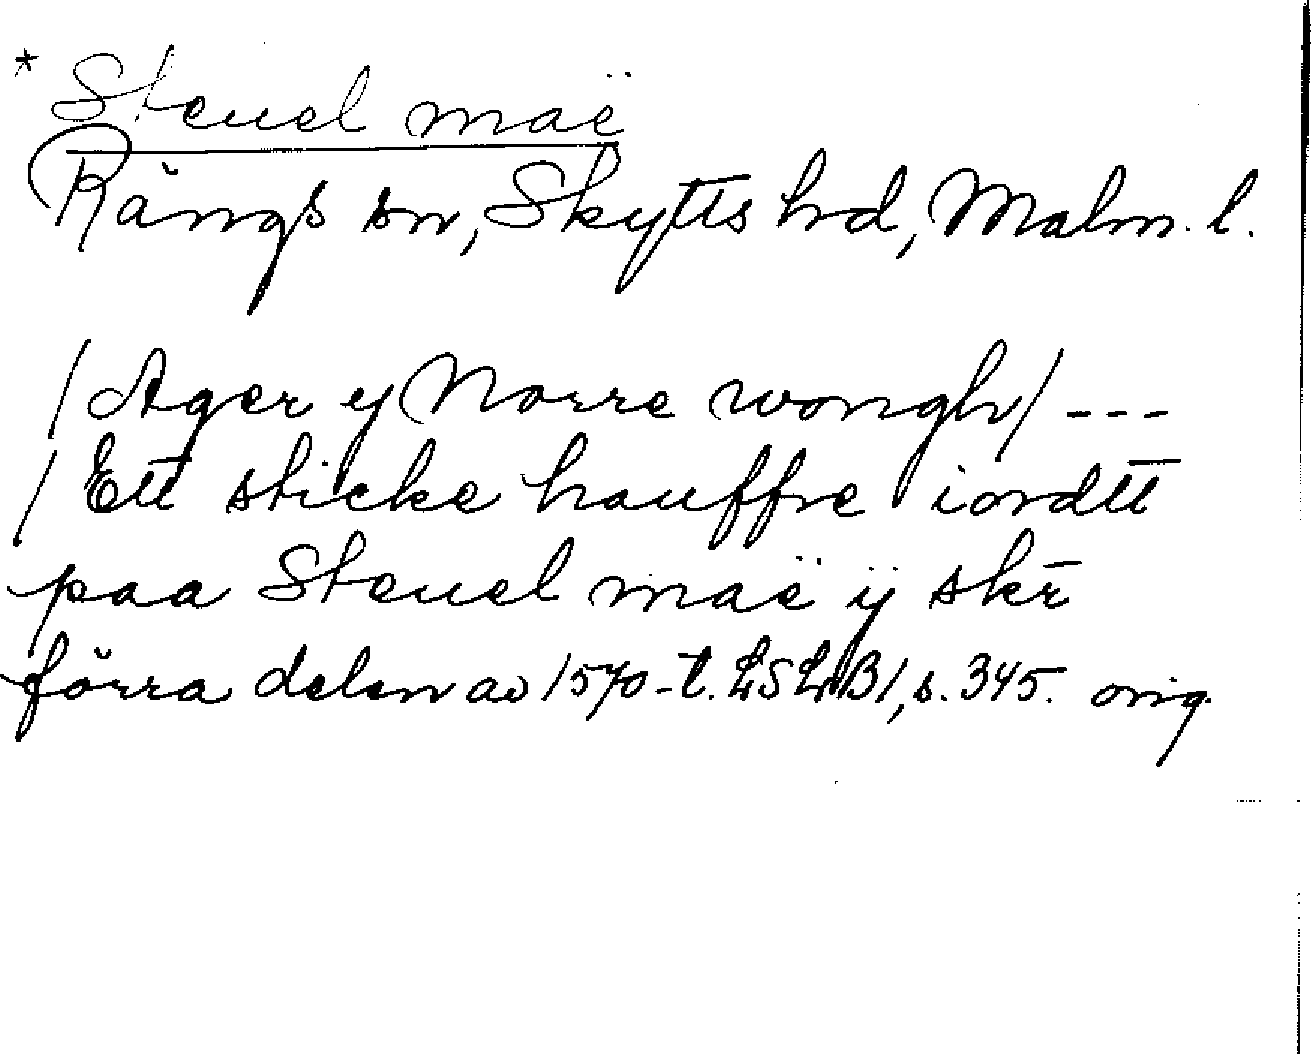 * Steuel maë
Rängs sn, Skytts hd, Malm. l.
/Ager y Norre wongh/ ---
/Ett sticke hauffre iordtt
paa Steuel maë ÿ skē
förra delen av 1570-t. LSLB1, s. 345. orig.